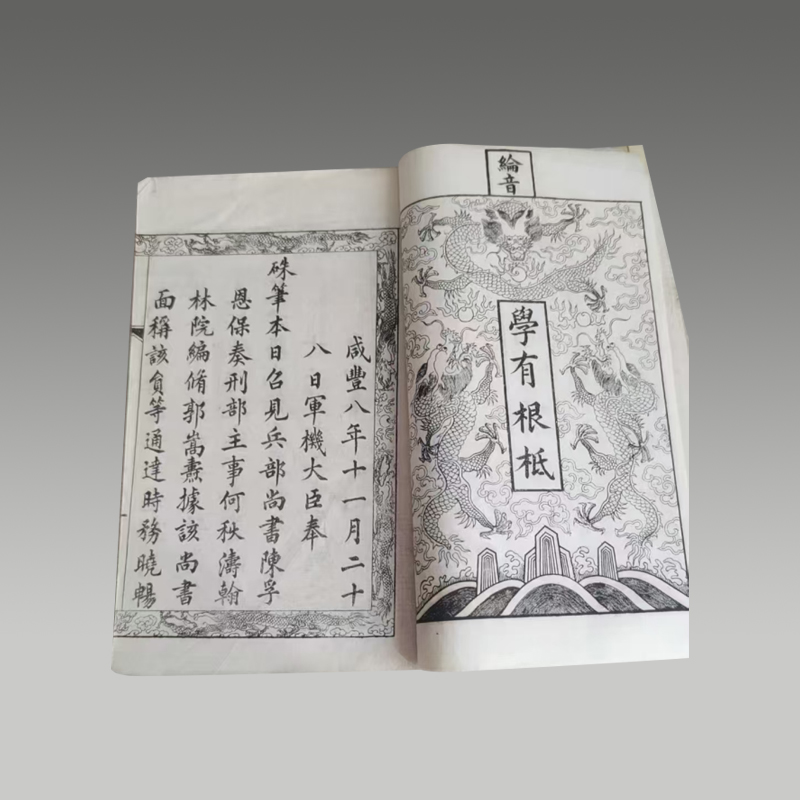 綸音
學有根柢
咸豐八年十一月二十
八日軍機大臣奉
硃筆本日召見兵部尚書陳孚
恩保奏刑部主事何秋濤翰
林院編脩郭嵩燾據該尚書
面稱該員等通達時務曉暢